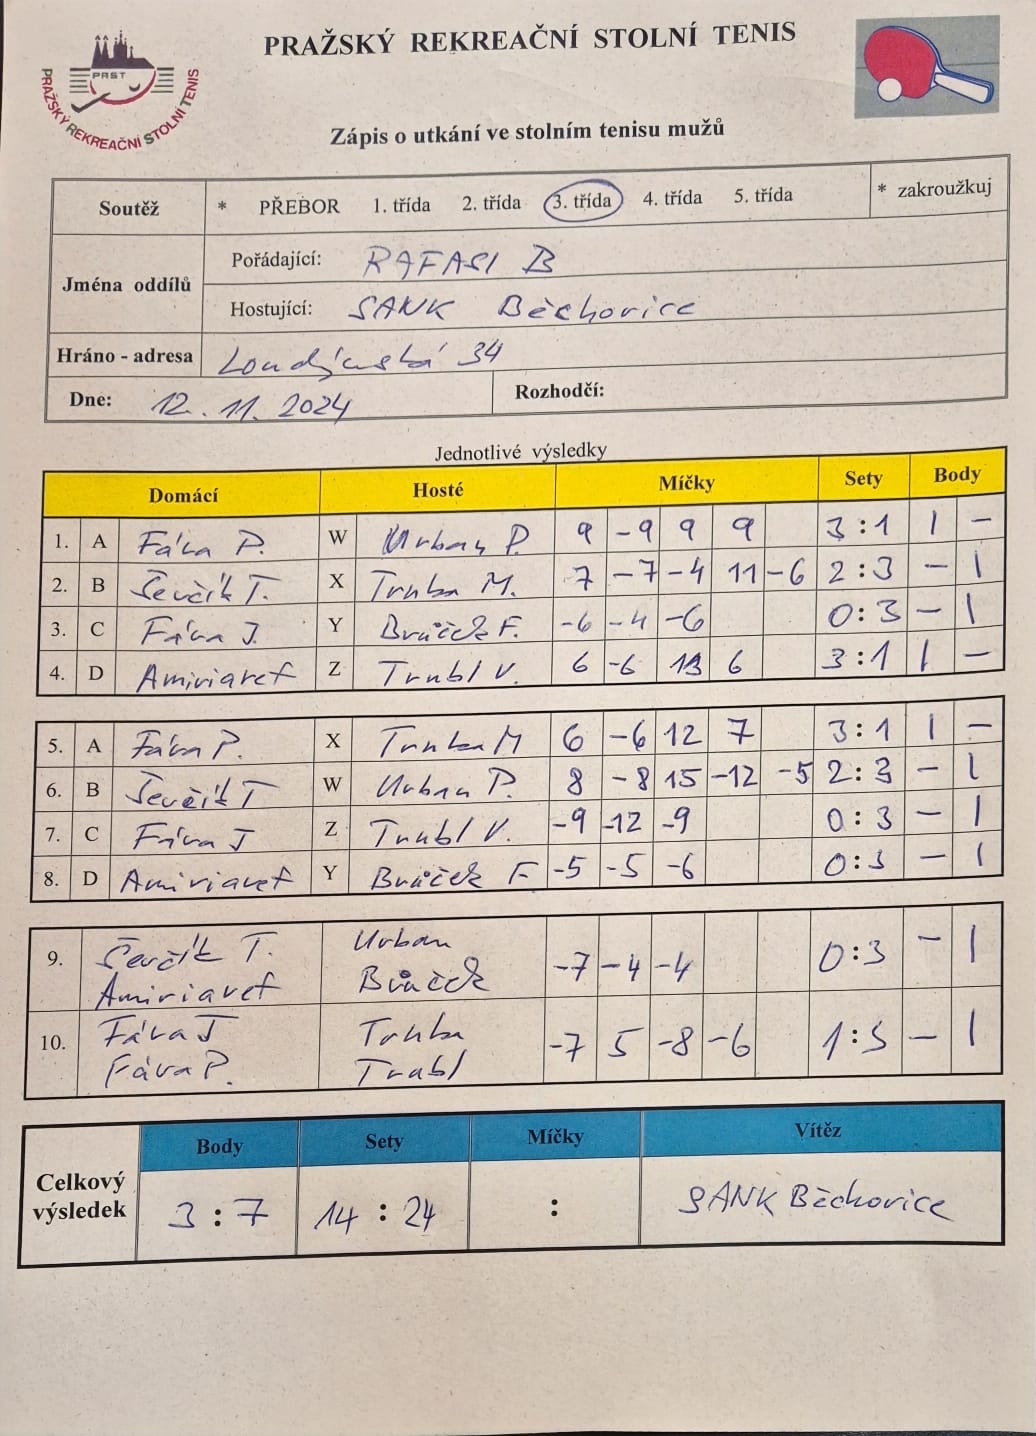 PRAŽSKÝ REKREAČNÍ STOLNÍ TENIS
PRST
PRAŽSKÝ REKREAČNÍ STOLNÍ TENIS
Zápis o utkání ve stolním tenisu mužů
Soutěž * PŘEBOR 1. třída 2. třída 3. třída 4. třída 5. třída * zakroužkuj
Jména oddílů
Pořádající: RAFASI B
Hostující: SANK Běchovice
Hráno - adresa Londýnská 34
Dne: 12. 11. 2024 Rozhodčí:
Jednotlivé výsledky
Domácí Hosté Míčky Sety Body
1. A Fáva P. W Urban P. 9 -9 9 9 3:1 1 -
2. B Ševčík T. X Truba M. 7 -7 -4 11 -6 2:3 - 1
3. C Fáva J. Y Brůček F. -6 -4 -6 0:3 - 1
4. D Amiriavef Z Trubl V. 6 -6 13 6 3:1 1 -
5. A Fáva P. X Truba M 6 -6 12 7 3:1 1 -
6. B Ševčík T W Urban P. 8 -8 15 -12 -5 2:3 - 1
7. C Fáva J Z Trubl V. -9 -12 -9 0:3 - 1
8. D Amiriavef Y Brůček F -5 -5 -6 0:3 - 1
9. Ševčík T. Urban -7 -4 -4 0:3 - 1
Amiriavef Brůček
10. Fáva J Truba -7 5 -8 -6 1:3 - 1
Fáva P. Trubl
Body Sety Míčky Vítěz
Celkový výsledek 3:7 14:24 : SANK Běchovice